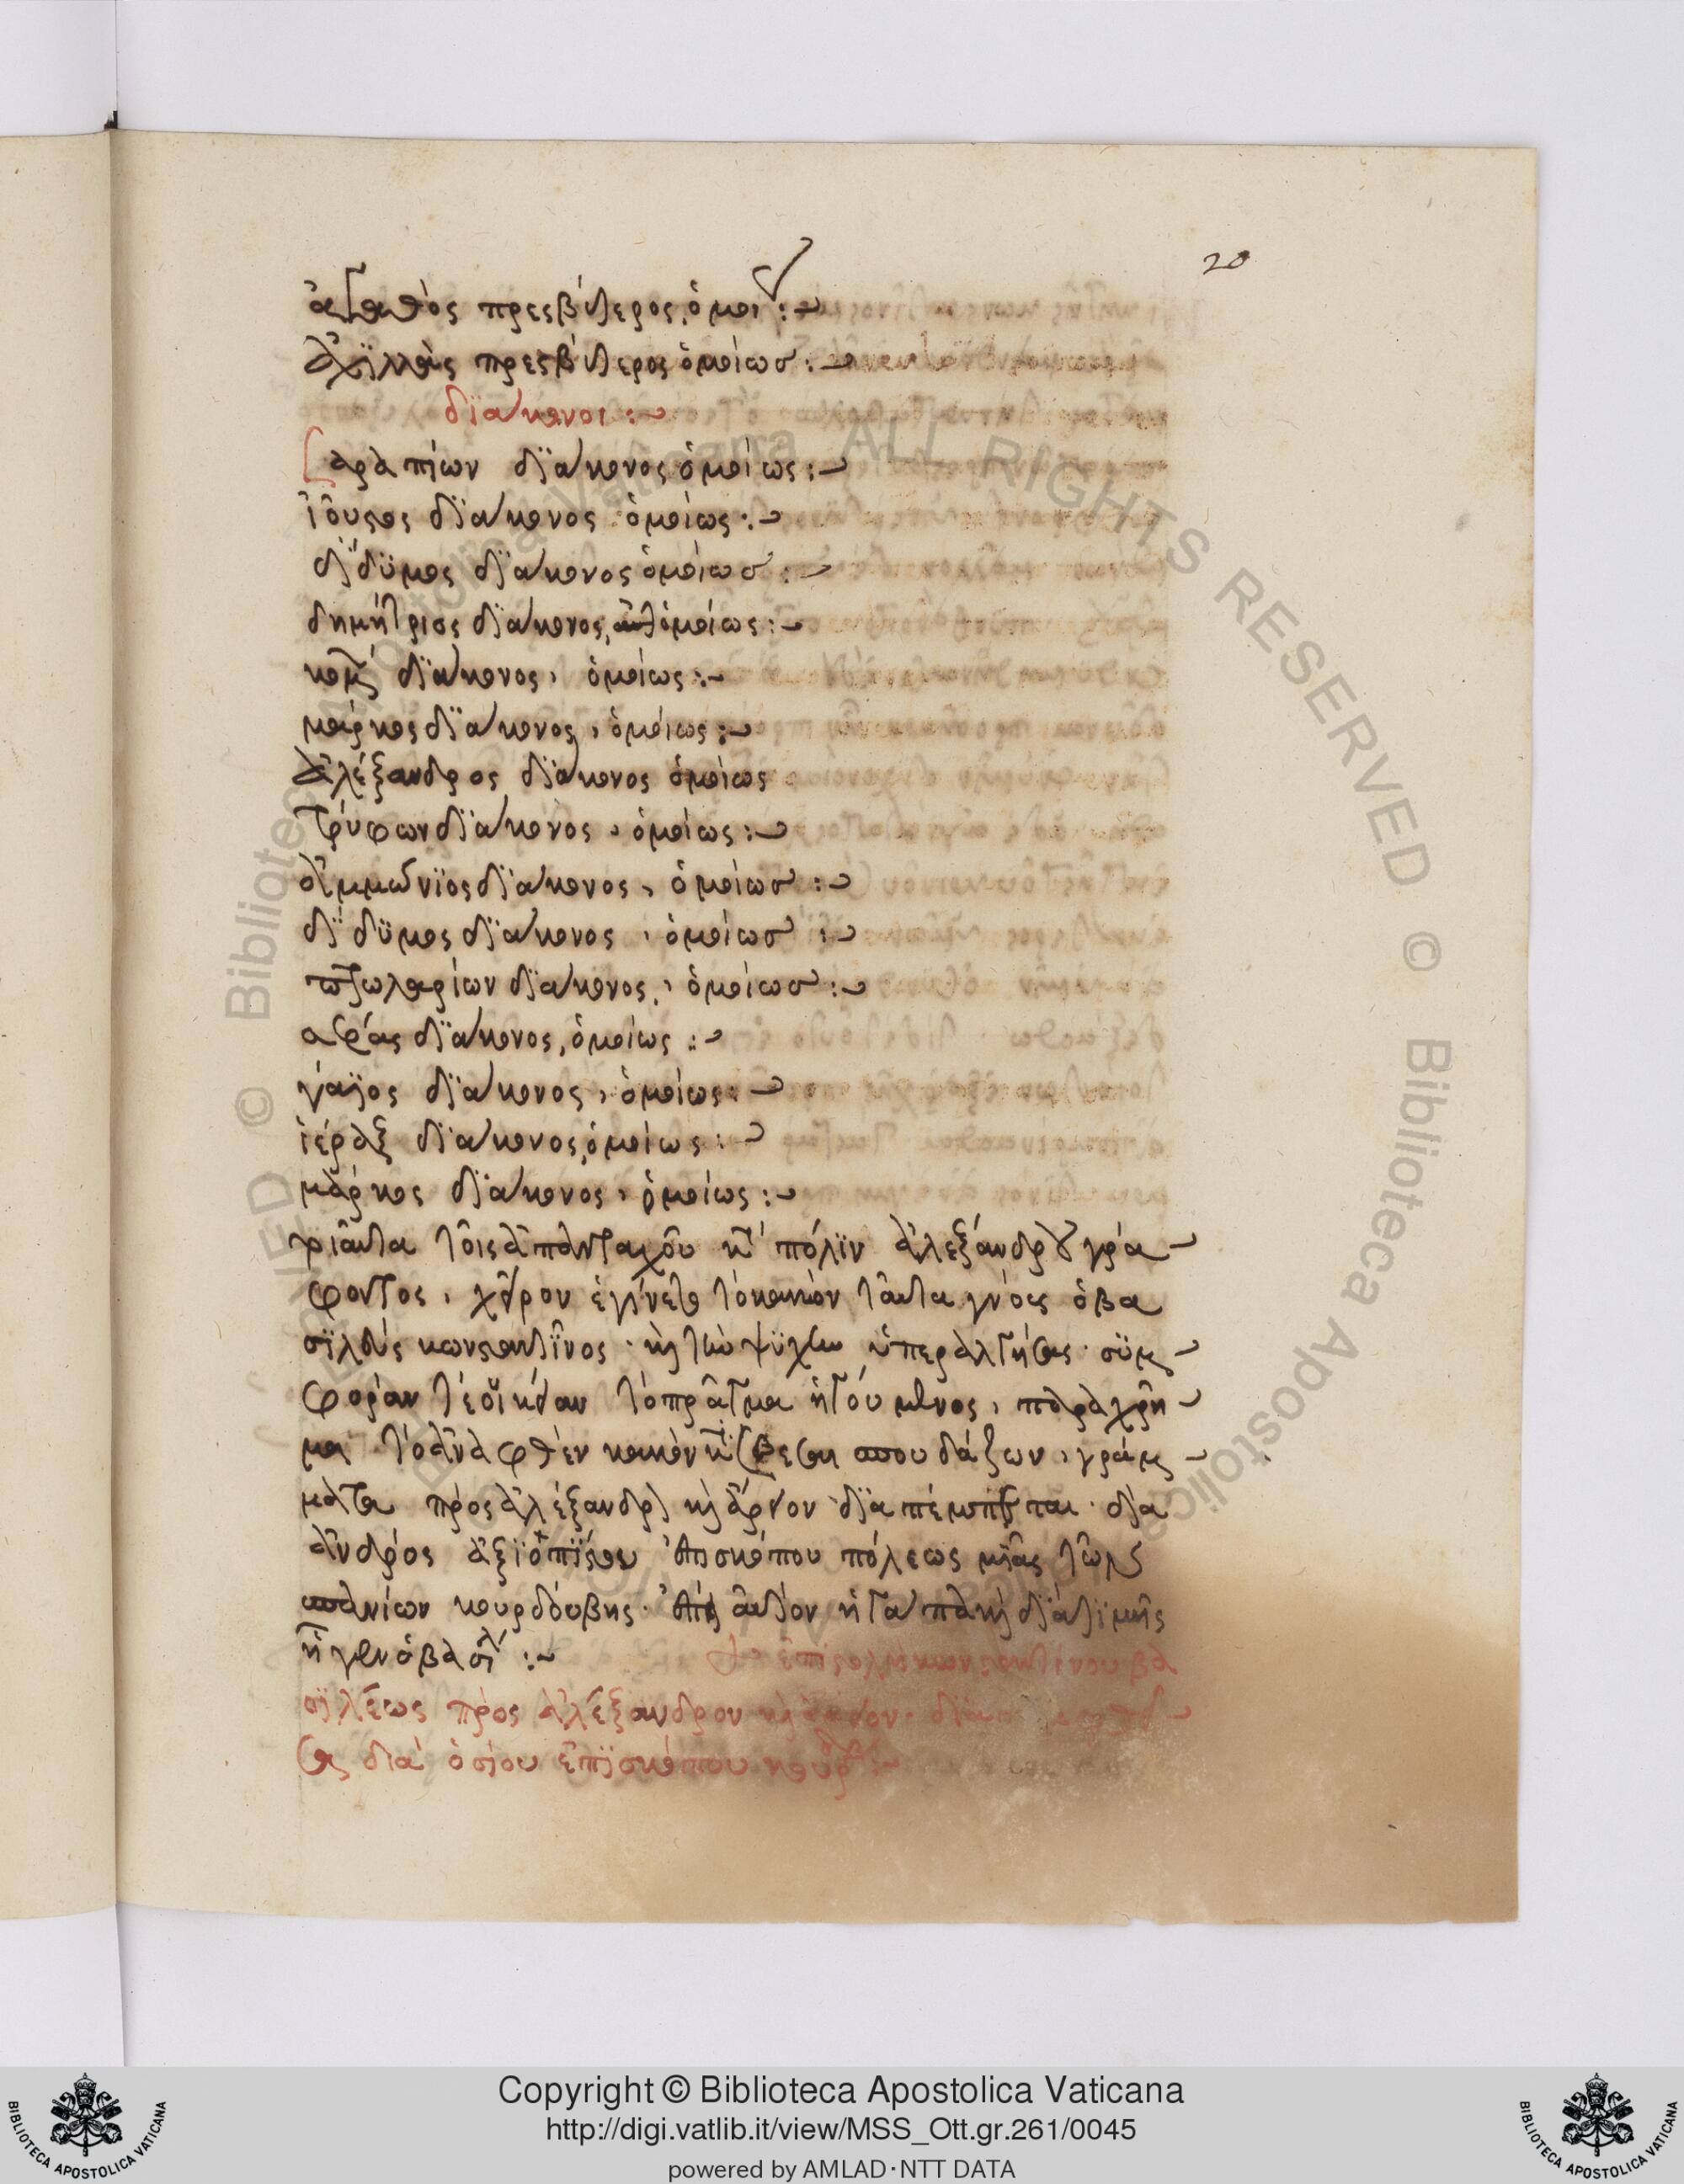 20
ἀγαθὸς πρεσβύτερος, ὁμοι :~
ἀχϊλλὰς πρεσβύτερος ὁμοίωσ :~
δϊάκονοι :~
Σαραπίων δϊάκονος ὁμοίως :~
ἰοῦστος δϊάκονος ὁμοίως :~
δίδϋμος δϊάκονος ὁμοίωσ :~
δημήτριος δϊάκονος, ὁμοίως :~
δϊάκονος, ὁμοίως :~
μάρκος δϊάκονος, ὁμοίως :~
ἀλέξανδρος δϊάκονος ὁμοίως
τρύφων δϊάκονος, ὁμοίως :~
ἀμμώνϊος δϊάκονος, ὁμοίωσ :~
δίδϋμος δϊάκονος, ὁμοίωσ :~
πτωλαρίων δϊάκονος, ὁμοίωσ :~
δϊάκονος, ὁμοίως :~
γάϊος δϊάκονος, ὁμοίως :~
ἱέραξ δϊάκονος, ὁμοίως :~
μάρκος δϊάκονος, ὁμοίως :~
τοῖς ἁπανταχοῦ κατὰ πόλϊν ἀλεξάνδρου γρά
φοντος, χεῖρον ἐγίνετο τὸ κακὸν ταῦτα γνοὺς ὁ βα
σϊλεὺς κωνσταντῖνος· καὶ τὴν ψϋχὴν ὑπεραλγήσας· σϋμ
φορὰν τὲ οἰκείαν τὸ πρᾶγμα ἡγούμενος, παραχρῆ
μα τὸ ἀναφθὲν κακὸν κατασβέσαι σπουδάζων, γράμ
ματα πρὸς ἀλέξανδρον καὶ ἄρειον δϊαπέμπεται· δϊὰ
ἀνδρὸς ἀξϊοπίστου ἐπισκόπου πόλεως μιᾶς τῶν
σπανίων κουρδούβης· αὐτὸν ἠγάπα καὶ δϊὰ τϊμῆς
ἦγεν ὁ βασϊλ :~ ἐπιστολὴ κωνσταντίνου βα
σϊλέως πρὸς ἀλέξανδρον καὶ ἄρειον·
σα διὰ ὁσίου ἐπϊσκόπου κουρδ :~
Copyright © Biblioteca Apostolica Vaticana
http://digi.vatlib.it/view/MSS_Ott.gr.261/0045
powered by AMLAD·NTT DATA
BIBLIOTECA APOSTOLICA VATICANA
BIBLIOTECA APOSTOLICA VATICANA
© Biblioteca Apostolica Vaticana ALL RIGHTS RESERVED © Biblioteca Apostolica